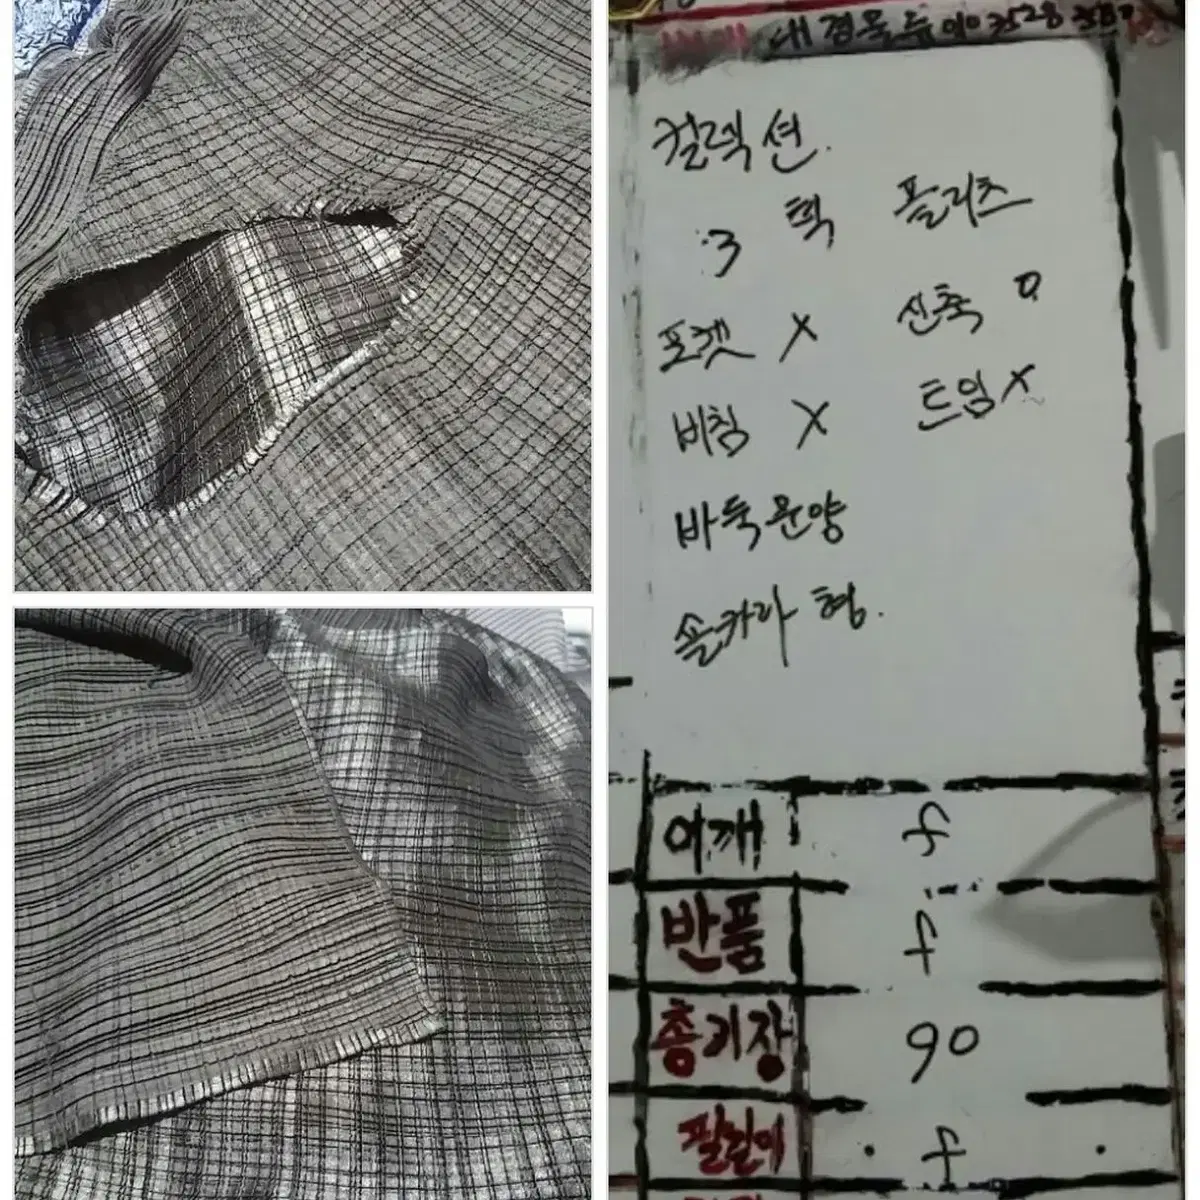 컬렉션.
3 턱 플리츠
포켓 X 신축 O
비침 X 트임 X
바둑문양
숄카라 형.
어깨 f
반품 f
총기장 90
팔길이 f